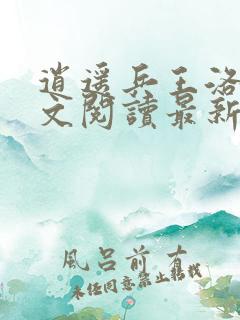 逍遥兵王洛
文閱讀最新
風呂前有
未经同意禁止转载